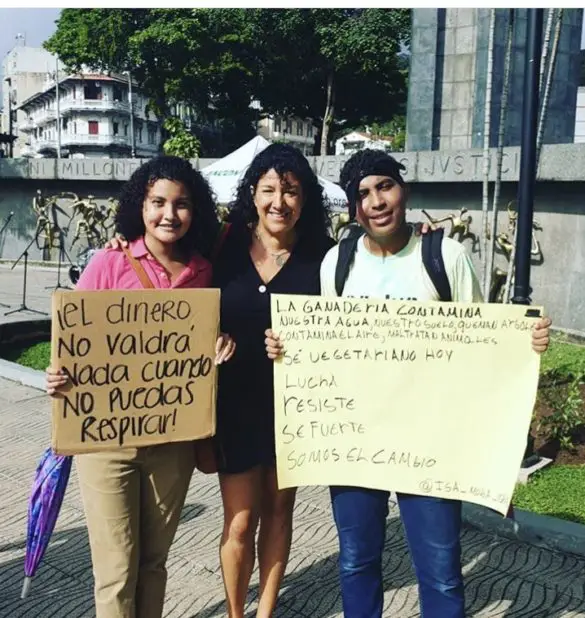 NI MILLONE JVSTICI
¡EL DINERO,
NO VALDRÁ
NADA CUANDO
NO PUEDAS
RESPIRAR!
LA GANADERIA CONTAMINA
NUESTRA AGUA, NUESTRO SUELO, QUEMAN ARBOLES
CONTAMINA EL AIRE, MALTRATAN ANIMALES
SÉ VEGETARIANO HOY
LUCHA
RESISTE
SE FUERTE
SOMOS EL CAMBIO